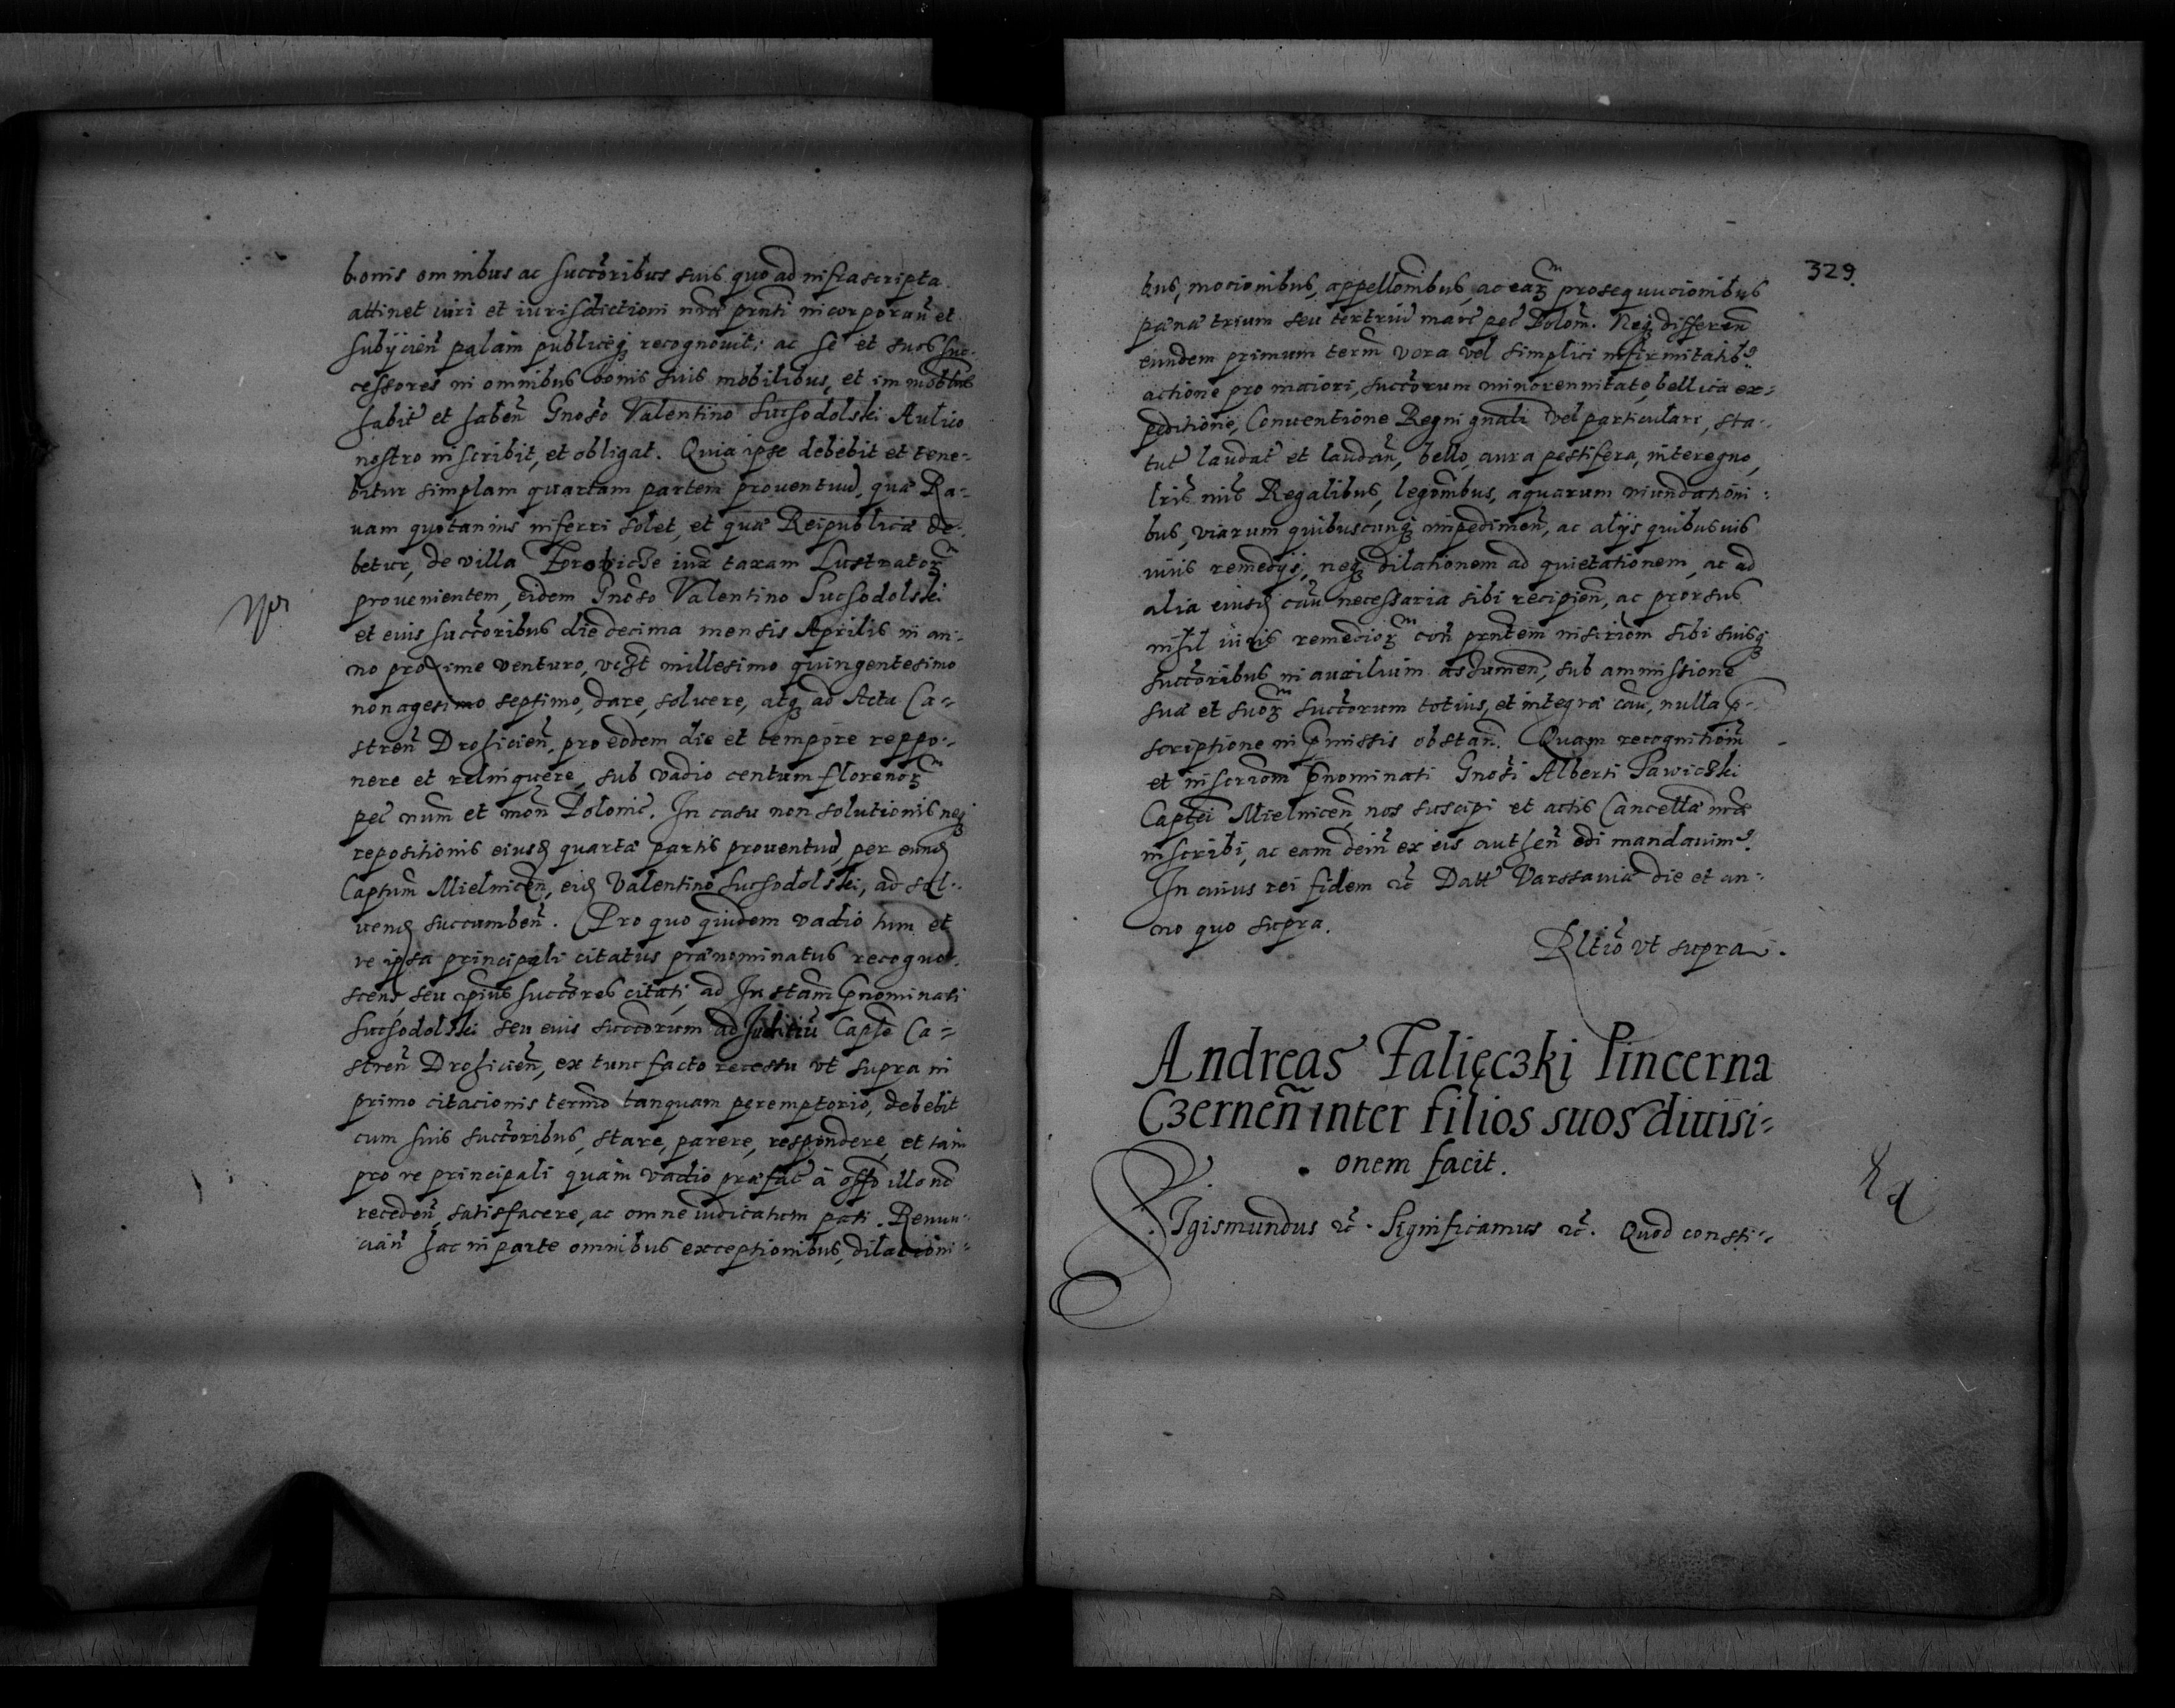 bonis omnibus ac succõribus suis quo ad infrascripta
attinet iuri et iurisdictioni nr̃æ prnti incorporañ et
subÿcieñ palam publiceq; recognouit: ac se et suos suc-
cessores in omnibus bonis suis mobilibus, et immobilibus
habit̃ et habeñ Gnoso Valentino Suchodolski Aulico
nostro inscribit, et obligat. Quia ipse debebit et tene-
bitur simplam quartam partem prouentuũ, quæ Ra-
uam quotannis inferri solet, et quæ Reipublicæ de-
betur, de villa iux̃ taxam Lustrator
prouenientem, eidem Gnoso Valentino Suchodolski
et eius succõribus die decima mensis Aprilis in an-
no proxime venturo, vczt millesimo quingentesimo
nonagesimo septimo, dare, soluere, atq; ad Acta Ca-
streñ Drohicieñ, pro eodem die et tempore reppo-
nere et relinquere, sub vadio centum florenor
pec̃ num̃ et moñ Polonic̃. In casu non solutionis neq;
repositionis eiusd quartæ partis prouentuũ, per eund
Captum Mielniceñ, eid Valentino Suchodolski, ad sol-
uend succumbeñ. Pro quo quidem vadio tum et
re ipsa principali citatus prænominatus recogno-
scens, seu ipsius succõres citati, ad Instam̃ p̃nominati
Suchodolski seu eius succõrum ad Juditiũ Capłe Ca-
streñ Drohicieñ, ex tunc facto recessu vt supra in
primo citacionis termõ tanquam peremptorio, debebit
cum suis succõribus, stare, parere, respondere, et tam
pro re principali quam vadio præfat̃ à off̃o illo nõ
recedeñ, satisfacere, ac omne iudicatum pati. Renun-
ciañ hac in parte omnibus exceptionibus, dilacioni-
329.
bus, mocionibus, appellõnibus, ac ear prosequucionibus
pæna trium seu tertriũ marc̃ pec̃ Poloñ. Neq; differeñ
eundem primum term̃ vera vel simplici infirmitatis
actione pro maiori, succõrum minorennitate, bellica ex-
peditione, Conuentione Regni gnali vel particulari, sta-
tut̃ laudat̃ et laudañ, bello, aura pestifera, interegno,
lrĩs nrĩs Regalibus, legõnibus, aquarum inundationi-
bus, viarum quibuscunq; impedimeñ, ac alÿs quibusuis
iuris remedÿs, neq; dilationem ad quietationem, ac ad
alia eiusd cauˀ necessaria sibi recipieñ, ac prorsus
nihil iuris remedior coñ prntem inscriõm sibi suisq;
succõribus in auxilium assumeñ, sub ammissione
suæ et suor succõrum totius, et integræ cauˀ, nulla p̃-
scriptione in p̃missis obstañ. Quam recognitiõm
et inscriõm p̃nominati Gnosi Alberti Sawiczki
Captei Mielniceñ, nos suscipi et actis Cancellæ nr̃æ
inscribi, ac eam deiñ ex eis autheñ edi mandauim9.
In cuius rei fidem etc̃ Datt̃ Varssauiæ die et an-
no quo supra.
Rltio vt supra.
Andreas Falięczki Pincerna
Czerneñ inter filios suos diuisi-
onem facit.
Sigismundus etc̃. Significamus etc̃. Quod consti-